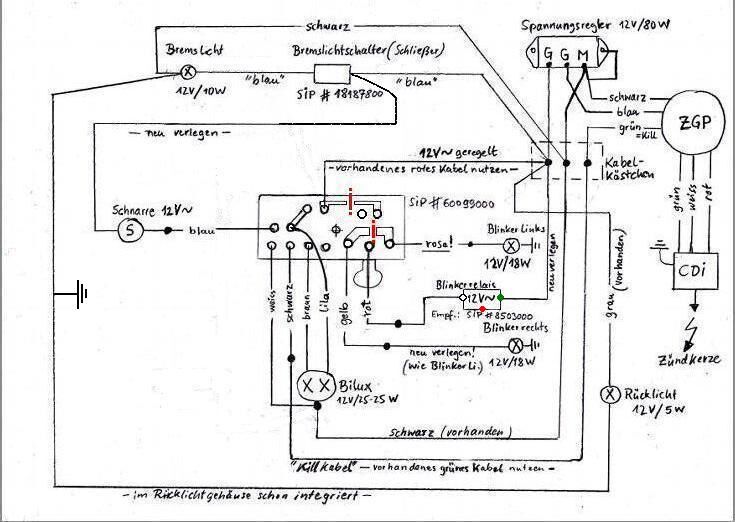 schwarz
Spannungsregler 12V/80W
Bremslicht
Bremslichtschalter (Schließer)
G G M
"blau"
"blau"
12V/10W
SIP # 18187800
schwarz
blau
grün
=Kill
ZGP
— neu verlegen —
12V~ geregelt
— vorhandenes rotes Kabel nutzen —
Kabel-
kästchen
SIP # 60099000
grün
weiss
rot
Schnarre 12V~
S
blau
rosa!
Blinker Links
12V/18W
neu verlegen
grau (vorhanden)
CDi
Blinkerrelais
12V~
Empf.: SIP # 8503000
weiss
schwarz
braun
lila
gelb
rot
Blinker rechts
12V/18W
neu verlegen!
(wie Blinker Li.)
Zündkerze
Bilux
12V/25-25W
Rücklicht
12V/5W
schwarz (vorhanden)
"Kill Kabel" — vorhandenes grünes Kabel nutzen —
— im Rücklichtgehäuse schon integriert —